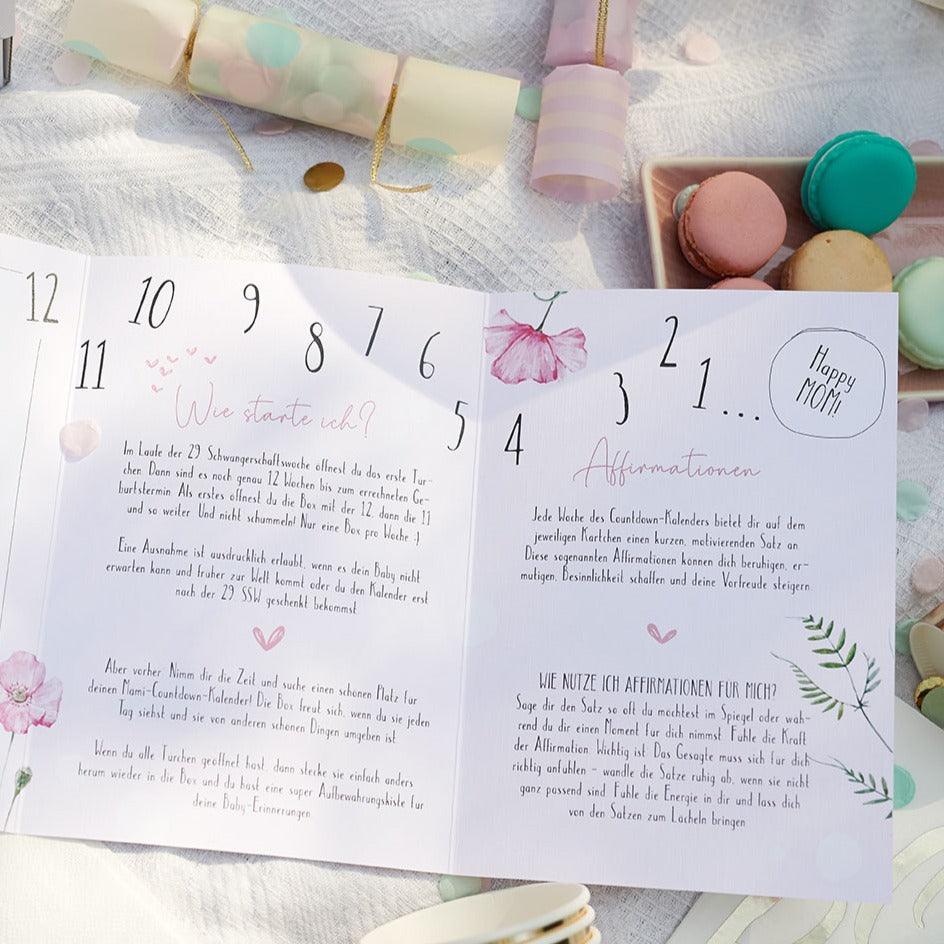 12
11
10
9
8
7
6
5
4
3
2
1...
Happy
MOM!
Wie starte ich?
Im Laufe der 29 Schwangerschaftswoche öffnest du das erste Tür-
chen. Dann sind es noch genau 12 Wochen bis zum errechneten Ge-
burtstermin. Als erstes öffnest du die Box mit der 12, dann die 11
und so weiter. Und nicht schummeln! Nur eine Box pro Woche :)
Eine Ausnahme ist ausdrücklich erlaubt, wenn es dein Baby nicht
erwarten kann und früher zur Welt kommt oder du den Kalender erst
nach der 29 SSW geschenkt bekommst.
Aber vorher: Nimm dir die Zeit und suche einen schönen Platz für
deinen Mami-Countdown-Kalender! Die Box freut sich, wenn du sie jeden
Tag siehst und sie von anderen schönen Dingen umgeben ist.
Wenn du alle Türchen geöffnet hast, dann stecke sie einfach anders
herum wieder in die Box und du hast eine super Aufbewahrungskiste für
deine Baby-Erinnerungen.
Affirmationen
Jede Woche des Countdown-Kalenders bietet dir auf dem
jeweiligen Kärtchen einen kurzen, motivierenden Satz an.
Diese sogenannten Affirmationen können dich beruhigen, er-
mutigen, Besinnlichkeit schaffen und deine Vorfreude steigern.
WIE NUTZE ICH AFFIRMATIONEN FÜR MICH?
Sage dir den Satz so oft du möchtest im Spiegel oder wäh-
rend du dir einen Moment für dich nimmst. Fühle die Kraft
der Affirmation. Wichtig ist: Das Gesagte muss sich für dich
richtig anfühlen - wandle die Sätze ruhig ab, wenn sie nicht
ganz passend sind. Fühle die Energie in dir und lass dich
von den Sätzen zum Lächeln bringen.